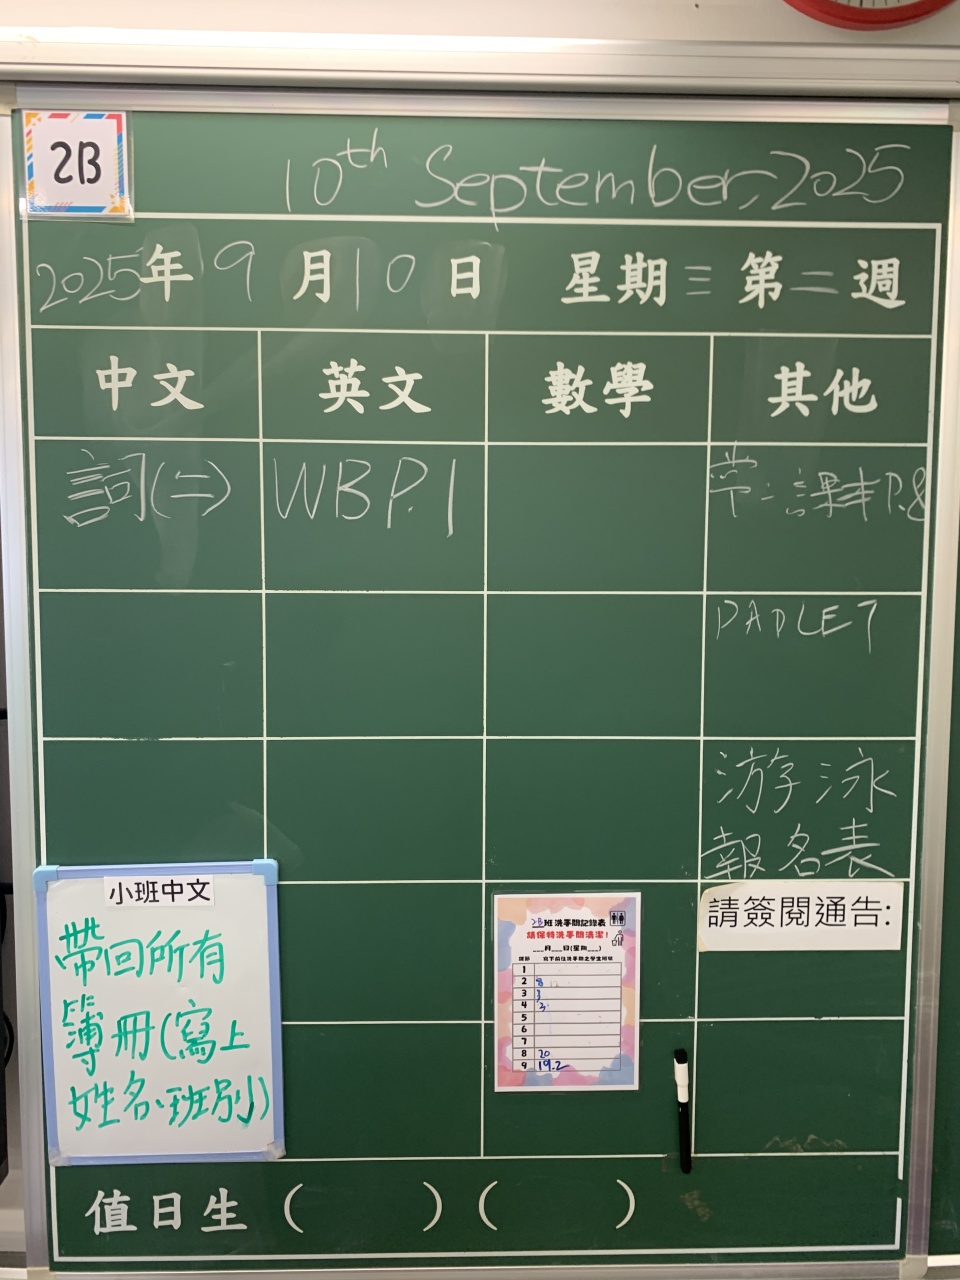 2B
10th September, 2025
2025年9月10日 星期三 第二週
中文 英文 數學 其他
詞(二) WB P.1 常:課本P.8
PADLET
游泳
報名表
小班中文
帶回所有
簿冊(寫上
姓名、班別)
請簽閱通告:
2B班洗手間記錄表
請保持洗手間清潔!
___月___日(星期___)
課節 寫下前往洗手間之學生班號
1
2 8 12
3 3
4 3
5
6
7
8 20
9 19.2
值日生( )( )